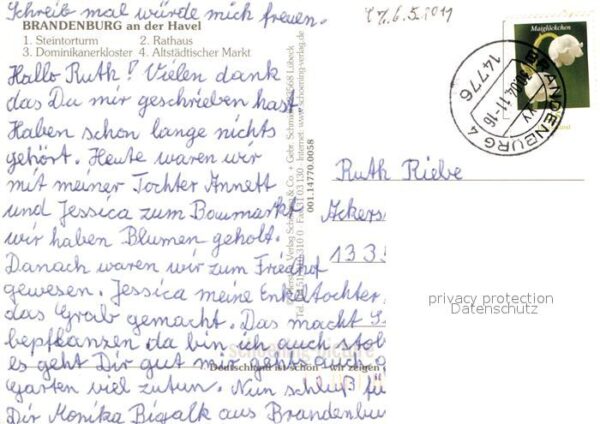 Schreib mal würde mich freuen.
BRANDENBURG an der Havel
1. Steintorturm 2. Rathaus
3. Dominikanerkloster 4. Altstädtischer Markt
Hallo Ruth! Vielen dank
das Du mir geschrieben hast.
Haben schon lange nichts
gehört. Heute waren wir
mit meiner Tochter Annett
und Jessica zum Boumarkt
wir haben Blumen geholt.
Danach waren wir zum Friedhof
gewesen. Jessica meine Enkeltochter,
das Grab gemacht. Das macht
bepflanzen da bin ich auch stol
es geht Dir gut mir gehts auch g
Garten viel zutun. Nun schluß fü
Dir Monika Bigalk aus Brandenbu
Deutschland ist schön - wir zeigen
001.14770.0058
6.5.2011
Maiglöckchen
BRANDENBURG 4
14776
Ruth Riebe
Ackers
1335
privacy protection
Datenschutz